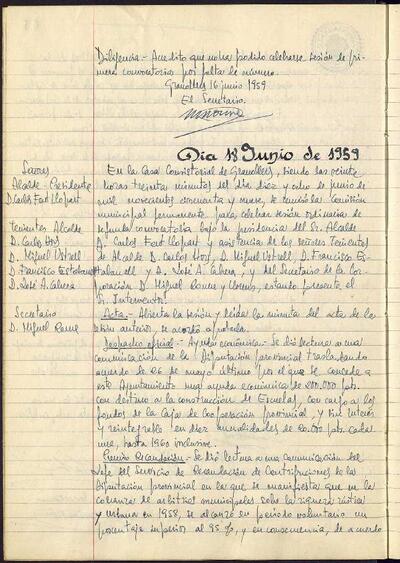 Diligencia.- Acredito que no ha podido celebrarse sesión de pri-
mera convocatoria por falta de número.
Granollers 16 junio 1959
El Secretario.
Día 18 Junio de 1959
Sres.
Alcalde-Presidente
D. Carlos Font Llopart
Tenientes Alcalde
D. Carlos
D. Miguel
D. Francisco Estabanell
D. José A. Cabrera
Secretario
D. Miguel Roma
En la Casa Consistorial de Granollers, siendo las veinte
horas treinta minutos del día diez y ocho de junio de
mil novecientos cincuenta y nueve, se reunió la Comisión
municipal permanente, para celebrar sesión ordinaria de
segunda convocatoria bajo la presidencia del Sr. Alcalde
D. Carlos Font Llopart y asistencia de los señores Tenientes
de Alcalde D. Carlos D. Miguel D. Francisco Es-
tabanell y D. José A. Cabrera, y del Secretario de la Cor-
poración D. Miguel Roma y estando presente el
Sr. Interventor.
Acta.- Abierta la sesión y leída la minuta del acta de la
sesión anterior, se acordó aprobarla.
Despacho oficial.- Ayuda económica.- Se dió lectura a una
comunicación de la Diputación provincial trasladando
acuerdo de 26 de mayo último por el que se concede a
este Ayuntamiento una ayuda económica de 200.000 pts.
con destino a la construcción de Escuelas, con cargo a los
fondos de la Caja de Cooperación provincial, y sin interés
y reintegrable en diez anualidades de 20.000 pts. cada
una, hasta 1960 inclusive.
Premio Recaudación.- Se dió lectura a una comunicación del
Jefe del Servicio de Recaudación de Contribuciones de la
Diputación provincial en la que se manifiesta que en la
cobranza de arbitrios municipales sobre la riqueza rústica
y urbana en 1958, se alcanzó en período voluntario un
porcentaje superior al 95 %, y en consecuencia, de acuerdo